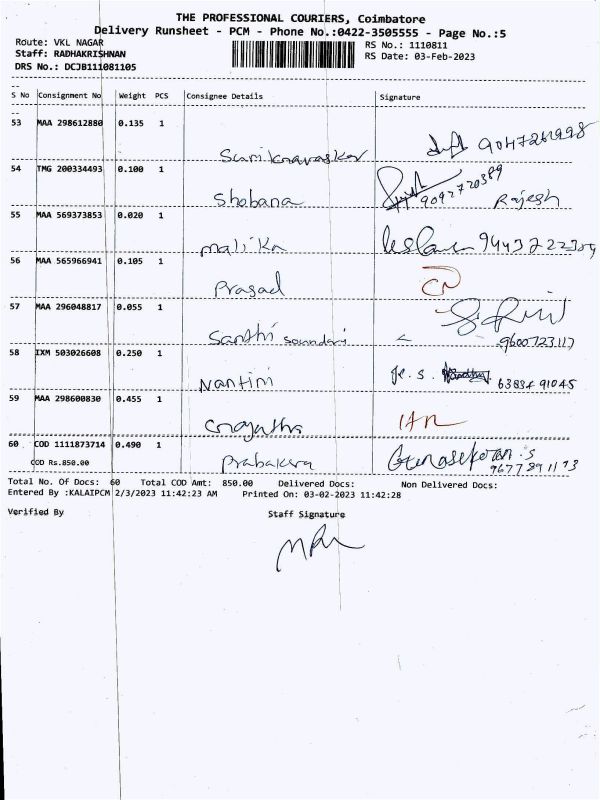 THE PROFESSIONAL COURIERS, Coimbatore
Delivery Runsheet - PCM - Phone No.:0422-3505555 - Page No.:5
Route: VKL NAGAR RS No.: 1110811
Staff: RADHAKRISHNAN RS Date: 03-Feb-2023
DRS No.: DCJB111081105
S No Consignment No Weight PCS Consignee Details Signature
53 MAA 298612880 0.135 1
54 TMG 200334493 0.100 1
Shobana 9092720389 Rajesh
55 MAA 569373853 0.020 1
malika
56 MAA 565966941 0.105 1
Prasad
57 MAA 296048817 0.055 1
Santhi Soundari 9600723117
58 IXM 503026608 0.250 1
Nantini
59 MAA 298600830 0.455 1
60 COD 1111873714 0.490 1
COD Rs.850.00 Gunasekaran.S
Total No. Of Docs: 60 Total COD Amt: 850.00 Delivered Docs: Non Delivered Docs:
Entered By :KALAIPCM 2/3/2023 11:42:23 AM Printed On: 03-02-2023 11:42:28
Verified By Staff Signature